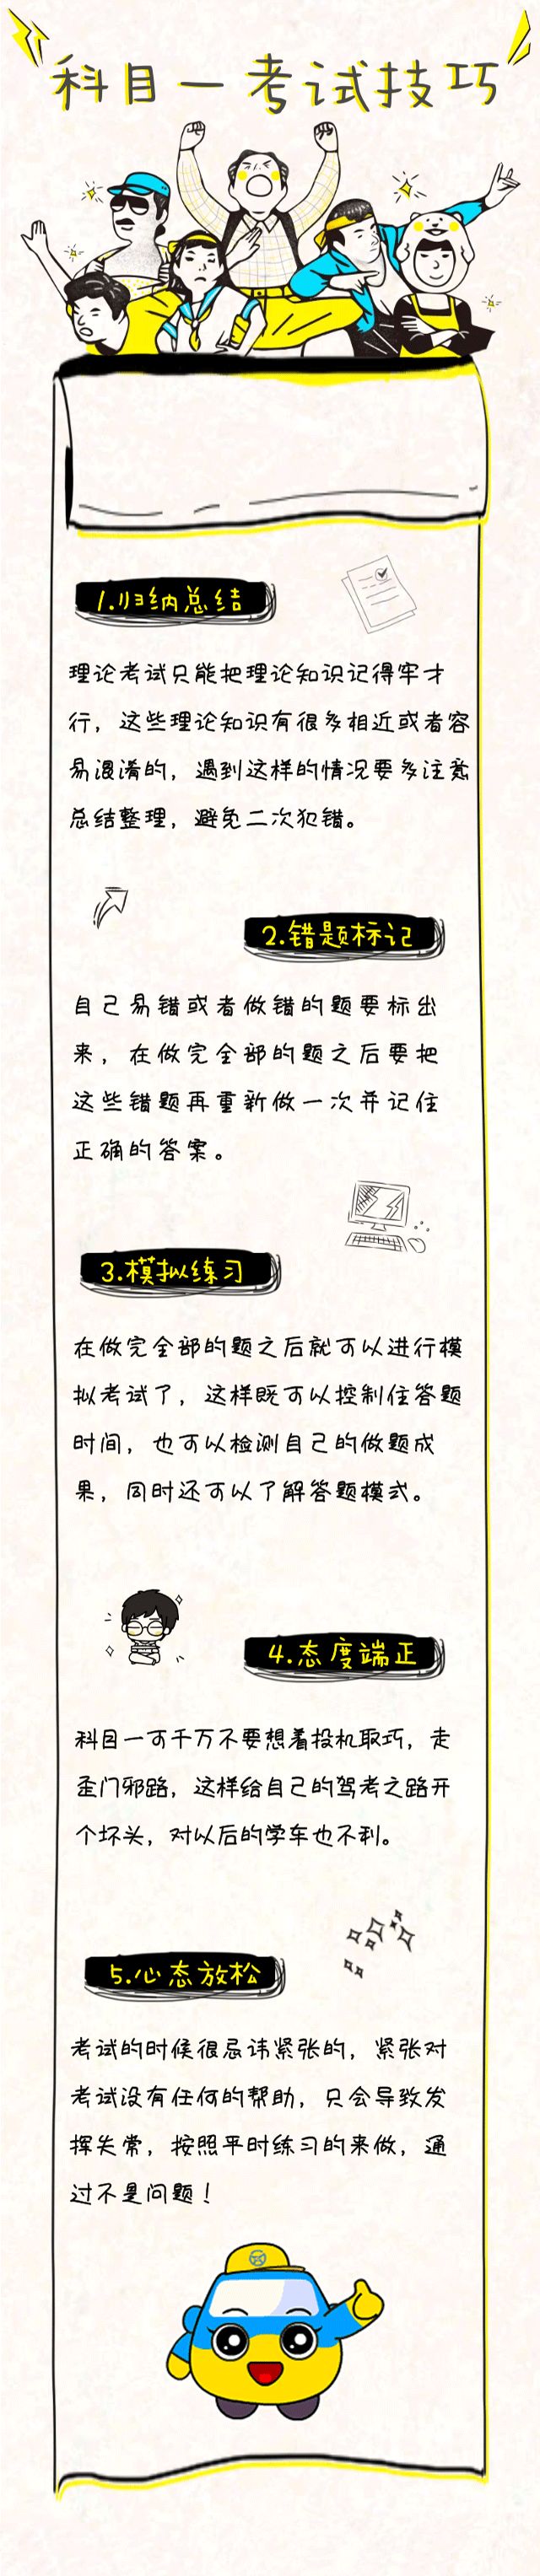 科目一考试技巧
1.归纳总结
理论考试只能把理论知识记得牢才
行，这些理论知识有很多相近或者容
易混淆的，遇到这样的情况要多注意
总结整理，避免二次犯错。
2.错题标记
自己易错或者做错的题要标出
来，在做完全部的题之后要把
这些错题再重新做一次并记住
正确的答案。
3.模拟练习
在做完全部的题之后就可以进行模
拟考试了，这样既可以控制住答题
时间，也可以检测自己的做题成
果，同时还可以了解答题模式。
4.态度端正
科目一可千万不要想着投机取巧，走
歪门邪路，这样给自己的驾考之路开
个坏头，对以后的学车也不利。
5.心态放松
考试的时候很忌讳紧张的，紧张对
考试没有任何的帮助，只会导致发
挥失常，按照平时练习的来做，通
过不是问题！